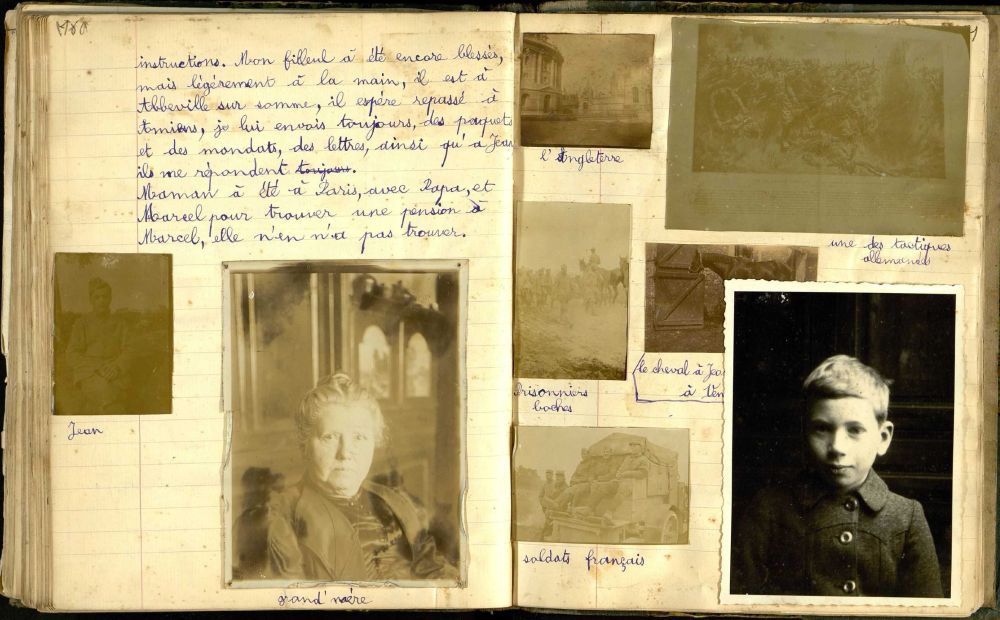 instructions. Mon filleul à été encore blessés,
mais légérement à la main, il est à
Abbeville sur somme, il espère repassé à
Amiens, je lui envois toujours, des paquets
et des mandats, des lettres, ainsi qu'à Jean
ils me répondent toujours.
Maman à été à Paris, avec Papa, et
Marcel pour trouver une pension à
Marcel, elle n'en n'a pas trouver.
Jean
grand'mère
l'Angleterre
une des tactiques
allemandes
Prisonniers
boches
le cheval à
à
soldats français